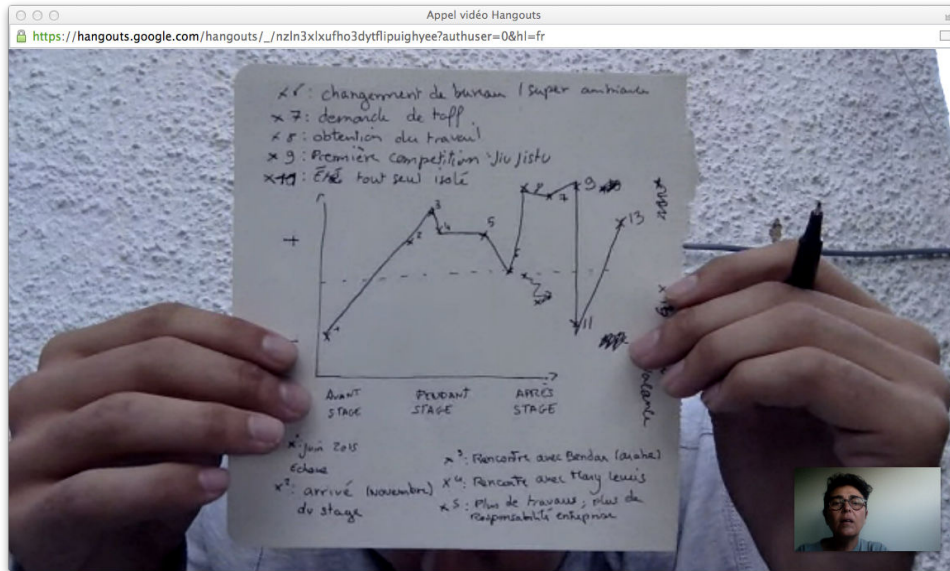 Appel vidéo Hangouts
https://hangouts.google.com/hangouts/_/nzln3xlxufho3dytflipuighyee?authuser=0&hl=fr
: changement de bureau / super ambiance
x 7: demande de taff
x 8: obtention du travail
x 9: Première competition Jiu Jistu
: Été tout seul isolé
3
9
8
2
4
5
7
13
+
1
11
-
AVANT STAGE
PENDANT STAGE
APRÈS STAGE
x1: juin 2015
x2: arrivé (novembre)
du stage
x3: Rencontre avec
x4: Rencontre avec Mary Lewis
x5: Plus de travaux, plus de
responsabilité entreprise